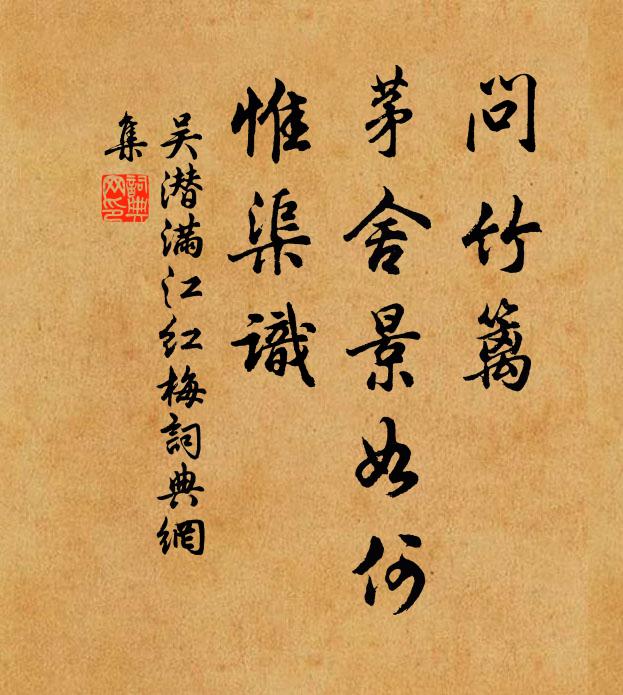 问竹篱
茅舍景如何
惟渠識
吴潜满江红梅詞典網
集
詞典
网印